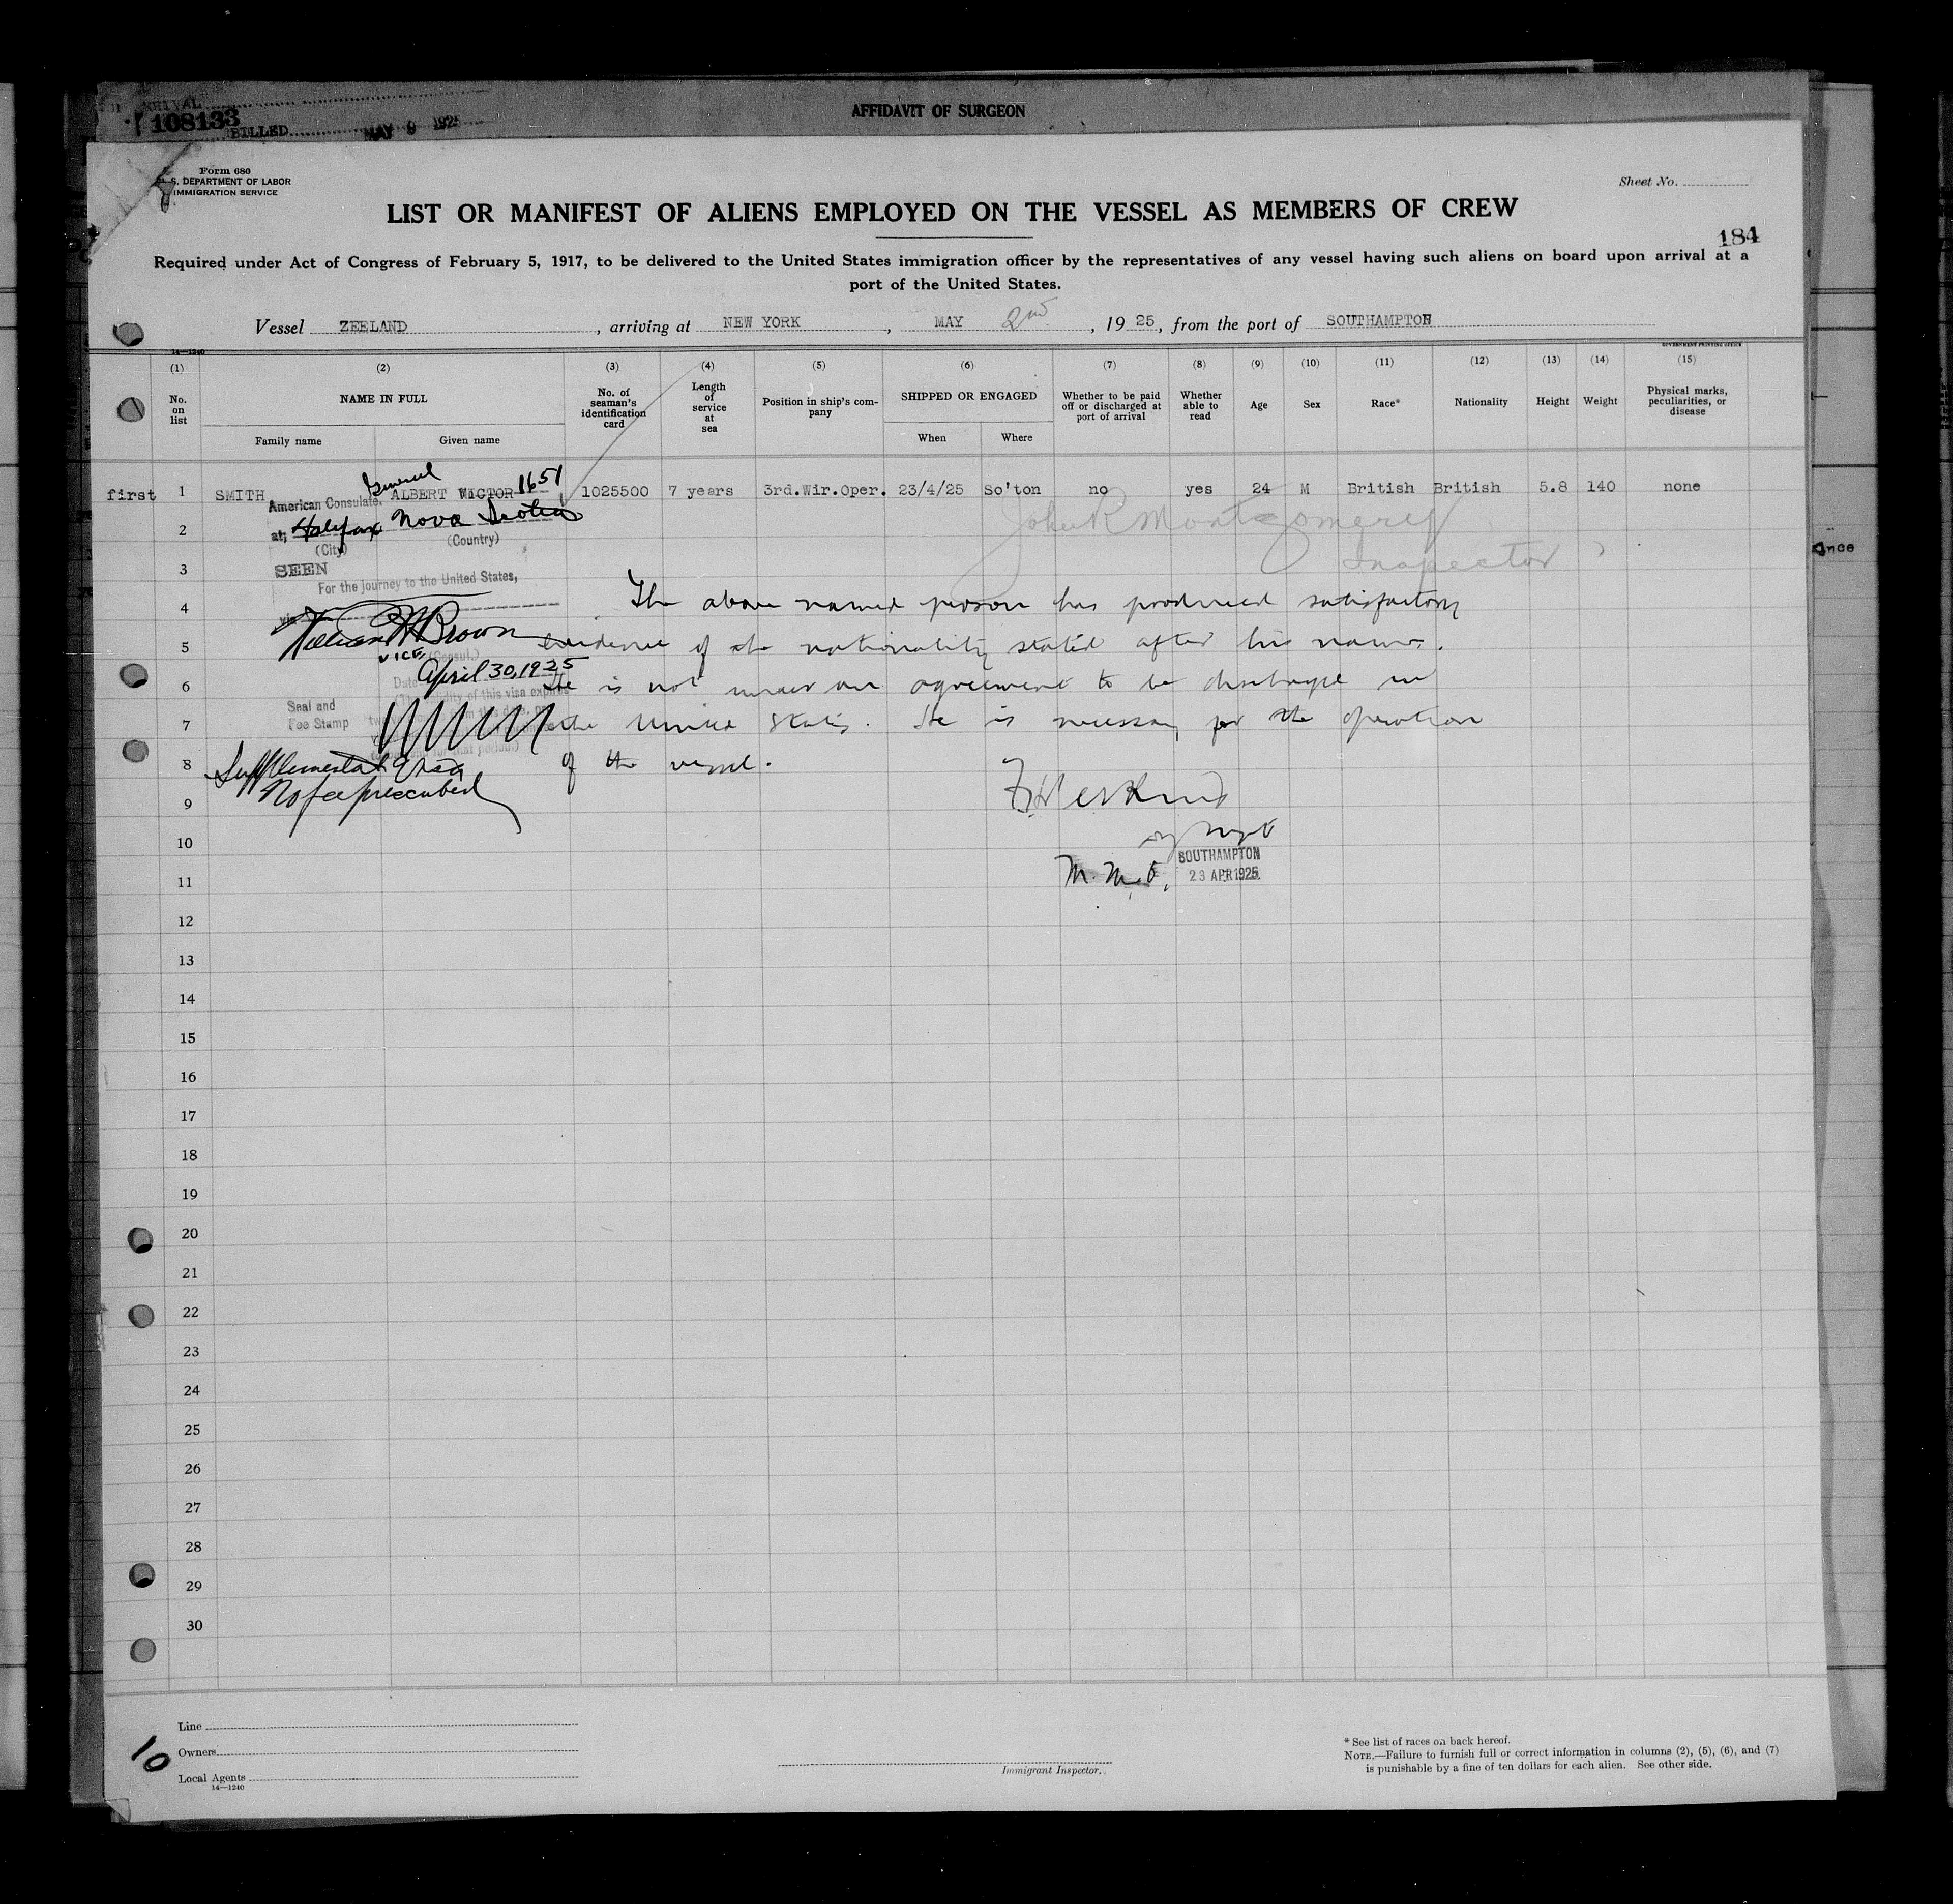 ARRIVAL
108133
BILLED
MAY 9 1925
AFFIDAVIT OF SURGEON
Form 680
U. S. DEPARTMENT OF LABOR
IMMIGRATION SERVICE
Sheet No.
LIST OR MANIFEST OF ALIENS EMPLOYED ON THE VESSEL AS MEMBERS OF CREW
184
Required under Act of Congress of February 5, 1917, to be delivered to the United States immigration officer by the representatives of any vessel having such aliens on board upon arrival at a
port of the United States.
Vessel ZEELAND, arriving at NEW YORK, MAY 2nd, 1925, from the port of SOUTHAMPTON
14—1240 GOVERNMENT PRINTING OFFICE
(1) (2) (3) (4) (5) (6) (7) (8) (9) (10) (11) (12) (13) (14) (15)
No. on list
NAME IN FULL
Family name Given name
No. of seaman's identification card
Length of service at sea
Position in ship's com-pany
SHIPPED OR ENGAGED
When Where
Whether to be paid off or discharged at port of arrival
Whether able to read
Age
Sex
Race*
Nationality
Height
Weight
Physical marks, peculiarities, or disease
first 1 SMITH ALBERT VICTOR 1025500 7 years 3rd.Wir.Oper. 23/4/25 So'ton no yes 24 M British British 5.8 140 none
General 1651
American Consulate,
at, Halifax Nova Scotia
(City) (Country)
John R Montgomery
Inspector
SEEN
For the journey to the United States,
via
William M Brown
VICE (Consul.)
April 30, 1925
Date
Seal and
Fee Stamp
Supplemental Visa
No fee prescribed
The above named person has produced satisfactory
evidence of the nationality stated after his name.
He is not under an agreement to be discharge in
the United States. He is necessary for the operation
of the vessel.
SOUTHAMPTON
23 APR 1925.
2
3
4
5
6
7
8
9
10
11
12
13
14
15
16
17
18
19
20
21
22
23
24
25
26
27
28
29
30
10
Line
Owners
Local Agents
14—1240
Immigrant Inspector.
* See list of races on back hereof.
NOTE.—Failure to furnish full or correct information in columns (2), (5), (6), and (7)
is punishable by a fine of ten dollars for each alien. See other side.
ance